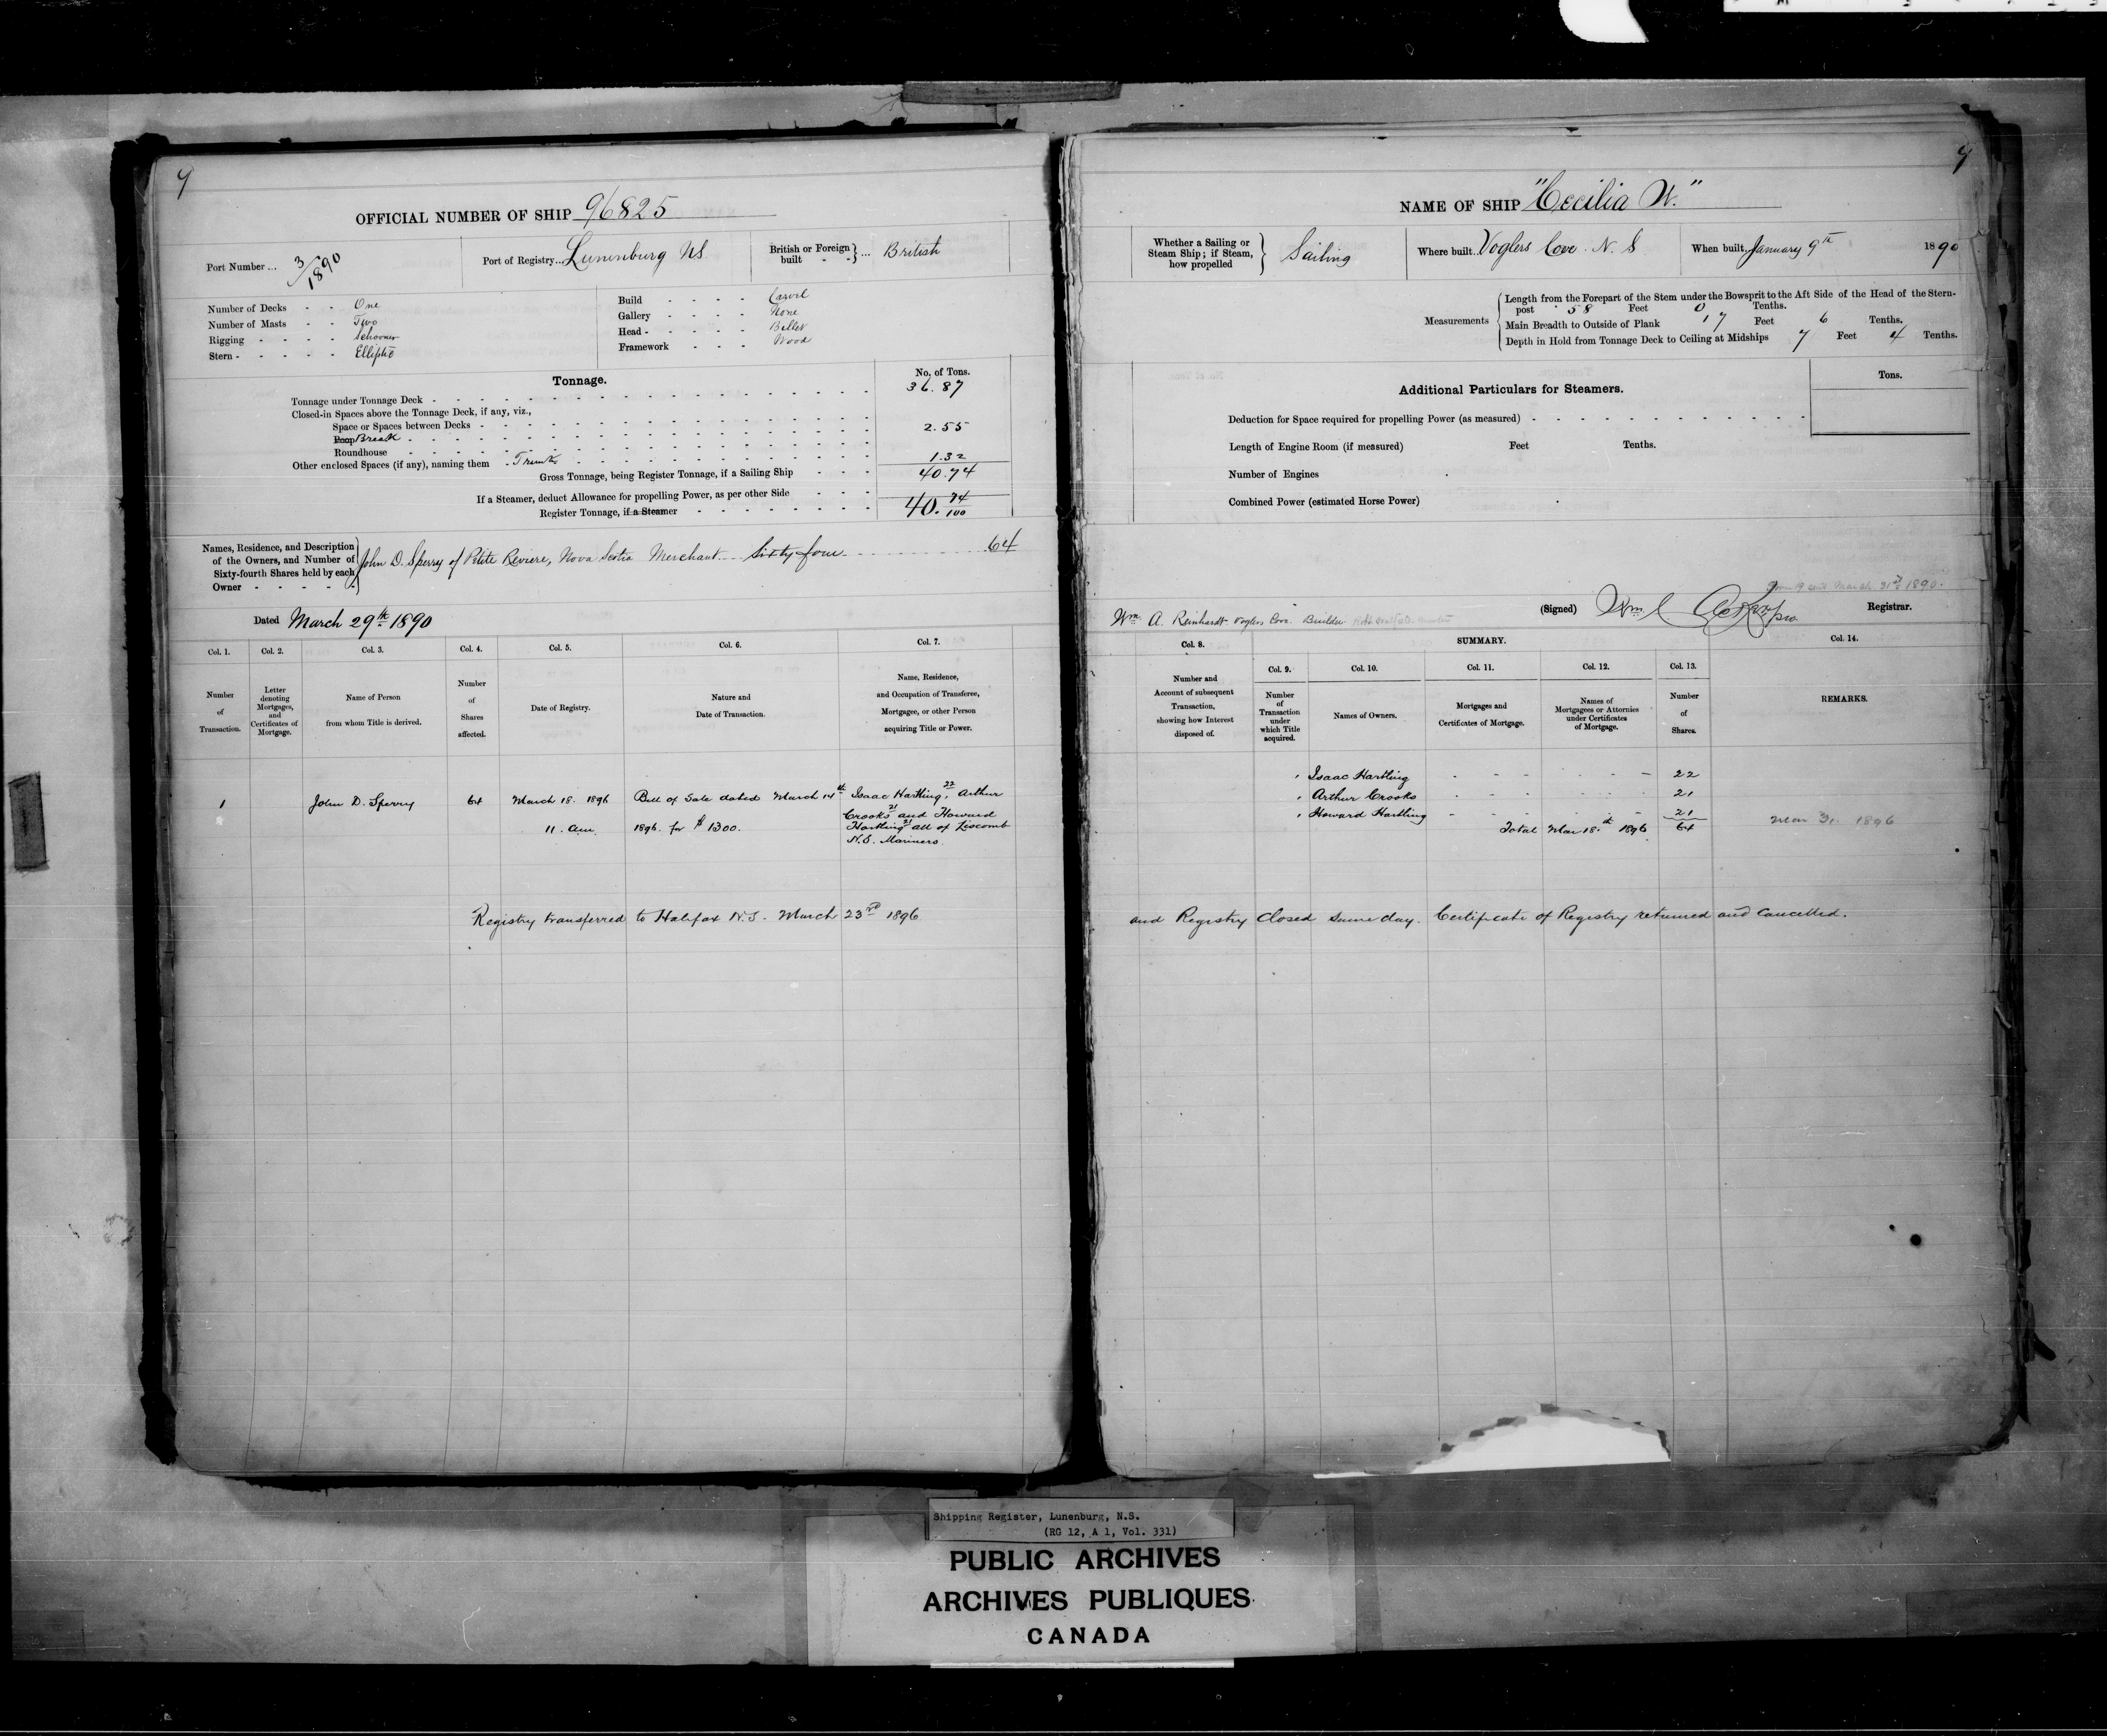 9
OFFICIAL NUMBER OF SHIP 96825
Port Number ... 3/1890
Port of Registry... Lunenburg NS
British or Foreign built - - } ... British
Number of Decks - - One
Number of Masts - - Two
Rigging - - - - Schooner
Stern - - - - - Elliptic
Build - - - - Carvel
Gallery - - - - None
Head - - - - - Billet
Framework - - - Wood
Tonnage.
No. of Tons.
Tonnage under Tonnage Deck - - - 36.87
Closed-in Spaces above the Tonnage Deck, if any, viz.,
Space or Spaces between Decks - - -
Poop Break - - - 2.55
Roundhouse - - -
Other enclosed Spaces (if any), naming them - Trunk - - - 1.32
Gross Tonnage, being Register Tonnage, if a Sailing Ship - - - 40.74
If a Steamer, deduct Allowance for propelling Power, as per other Side - - -
Register Tonnage, if a Steamer - - - 40. 74/100
Names, Residence, and Description
of the Owners, and Number of
Sixty-fourth Shares held by each
Owner - - - - -
John D. Sperry of Petite Reviere, Nova Scotia Merchant - - Sixty four - - - 64
Dated March 29th 1890
Col. 1.
Number
of
Transaction.
Col. 2.
Letter
denoting
Mortgages,
and
Certificates of
Mortgage.
Col. 3.
Name of Person
from whom Title is derived.
Col. 4.
Number
of
Shares
affected.
Col. 5.
Date of Registry.
Col. 6.
Nature and
Date of Transaction.
Col. 7.
Name, Residence,
and Occupation of Transferee,
Mortgagee, or other Person
acquiring Title or Power.
1
John D. Sperry
64
March 18. 1896
11. am.
Bill of Sale dated March 14th
1896. for $1300.
Isaac Hartling, 22 Arthur
Crooks 21 and Howard
Hartling 21 all of Liscomb
N.S. Mariners.
Registry transferred to Halifax N.S. March 23rd 1896
9
NAME OF SHIP "Cecilia W."
Whether a Sailing or
Steam Ship; if Steam,
how propelled
Sailing
Where built.. Voglers Cove. N. S
When built, January 9th 1890
Measurements
Length from the Forepart of the Stem under the Bowsprit to the Aft Side of the Head of the Stern-
post - 58 Feet 0 Tenths.
Main Breadth to Outside of Plank 17 Feet 6 Tenths.
Depth in Hold from Tonnage Deck to Ceiling at Midships 7 Feet 4 Tenths.
Additional Particulars for Steamers.
Tons.
Deduction for Space required for propelling Power (as measured) - - -
Length of Engine Room (if measured) Feet Tenths.
Number of Engines
Combined Power (estimated Horse Power)
March 31st 1890.
Wm A. Reinhardt Voglers Cove. Builder
(Signed) Wm Registrar.
SUMMARY.
Col. 8.
Number and
Account of subsequent
Transaction,
showing how Interest
disposed of.
Col. 9.
Number
of
Transaction
under
which Title
acquired.
Col. 10.
Names of Owners.
Col. 11.
Mortgages and
Certificates of Mortgage.
Col. 12.
Names of
Mortgagees or Attornies
under Certificates
of Mortgage.
Col. 13.
Number
of
Shares.
Col. 14.
REMARKS.
1 Isaac Hartling - - - 22
1 Arthur Crooks - - - 21
1 Howard Hartling - - - 21
Total Mar 18th 1896 64
Mar 31. 1896
and Registry Closed same day. Certificate of Registry returned and cancelled.
Shipping Register, Lunenburg, N.S.
(RG 12, A 1, Vol. 331)
PUBLIC ARCHIVES
ARCHIVES PUBLIQUES
CANADA